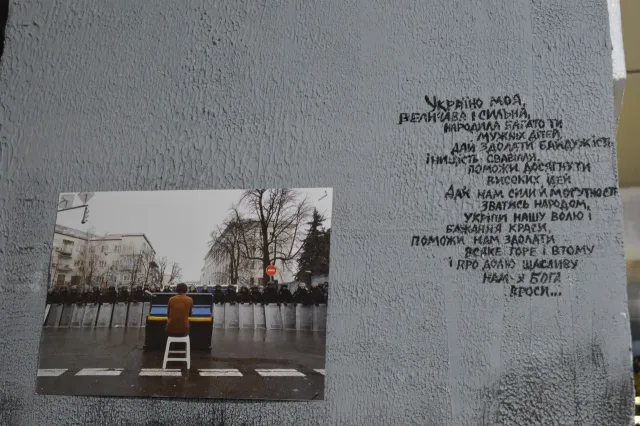 УКРАЇНО МОЯ,
ВЕЛИЧАВА І СИЛЬНА,
НАРОДИЛА БАГАТО ТИ
МУЖНІХ ДІТЕЙ,
ДАЙ ЗДОЛАТИ БАЙДУЖІСТЬ
І НИЦІСТЬ СВАВІЛЛЯ,
ПОМОЖИ ДОСЯГНУТИ
ВИСОКИХ ІДЕЙ
ДАЙ НАМ СИЛИ Й МОГУТНОСТІ
ЗВАТИСЬ НАРОДОМ,
УКРІПИ НАШУ ВОЛЮ І
БАЖАННЯ КРАСИ,
ПОМОЖИ НАМ ЗДОЛАТИ
ВСЯКЕ ГОРЕ І ВТОМУ
І ПРО ДОЛЮ ЩАСЛИВУ
НАМ У БОГА
ПРОСИ...